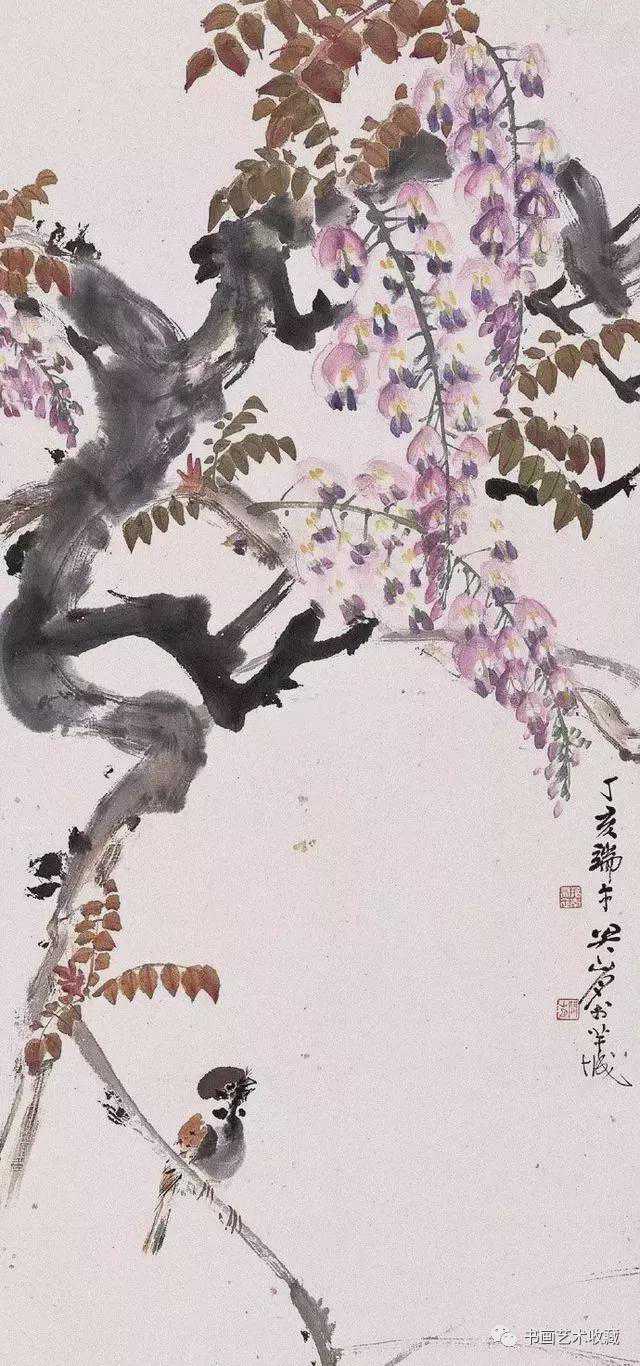 丁亥端午山于羊城
书画艺术收藏